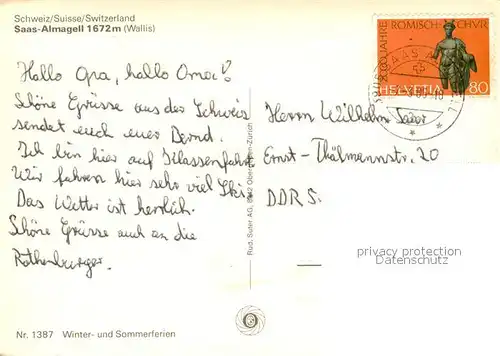 Schweiz/Suisse/Switzerland
Saas-Almagell 1672m (Wallis)
Hallo Opa, hallo Oma!
Schöne Grüsse aus der Schweiz
sendet euch euer Bernd.
Ich bin hier auf Klassenfahrt
Wir fahren hier sehr viel Ski.
Das Wetter ist herrlich.
Schöne Grüsse auch an die
Rothenburger.
Nr. 1387 Winter- und Sommerferien
Rud. Suter AG, 8942 Oberrieden-Zürich
2000 JAHRE RÖMISCH CHUR
HELVETIA 80
Herrn Wilhelm
Ernst-Thälmannstr. 20
DDR S.
privacy protection
Datenschutz